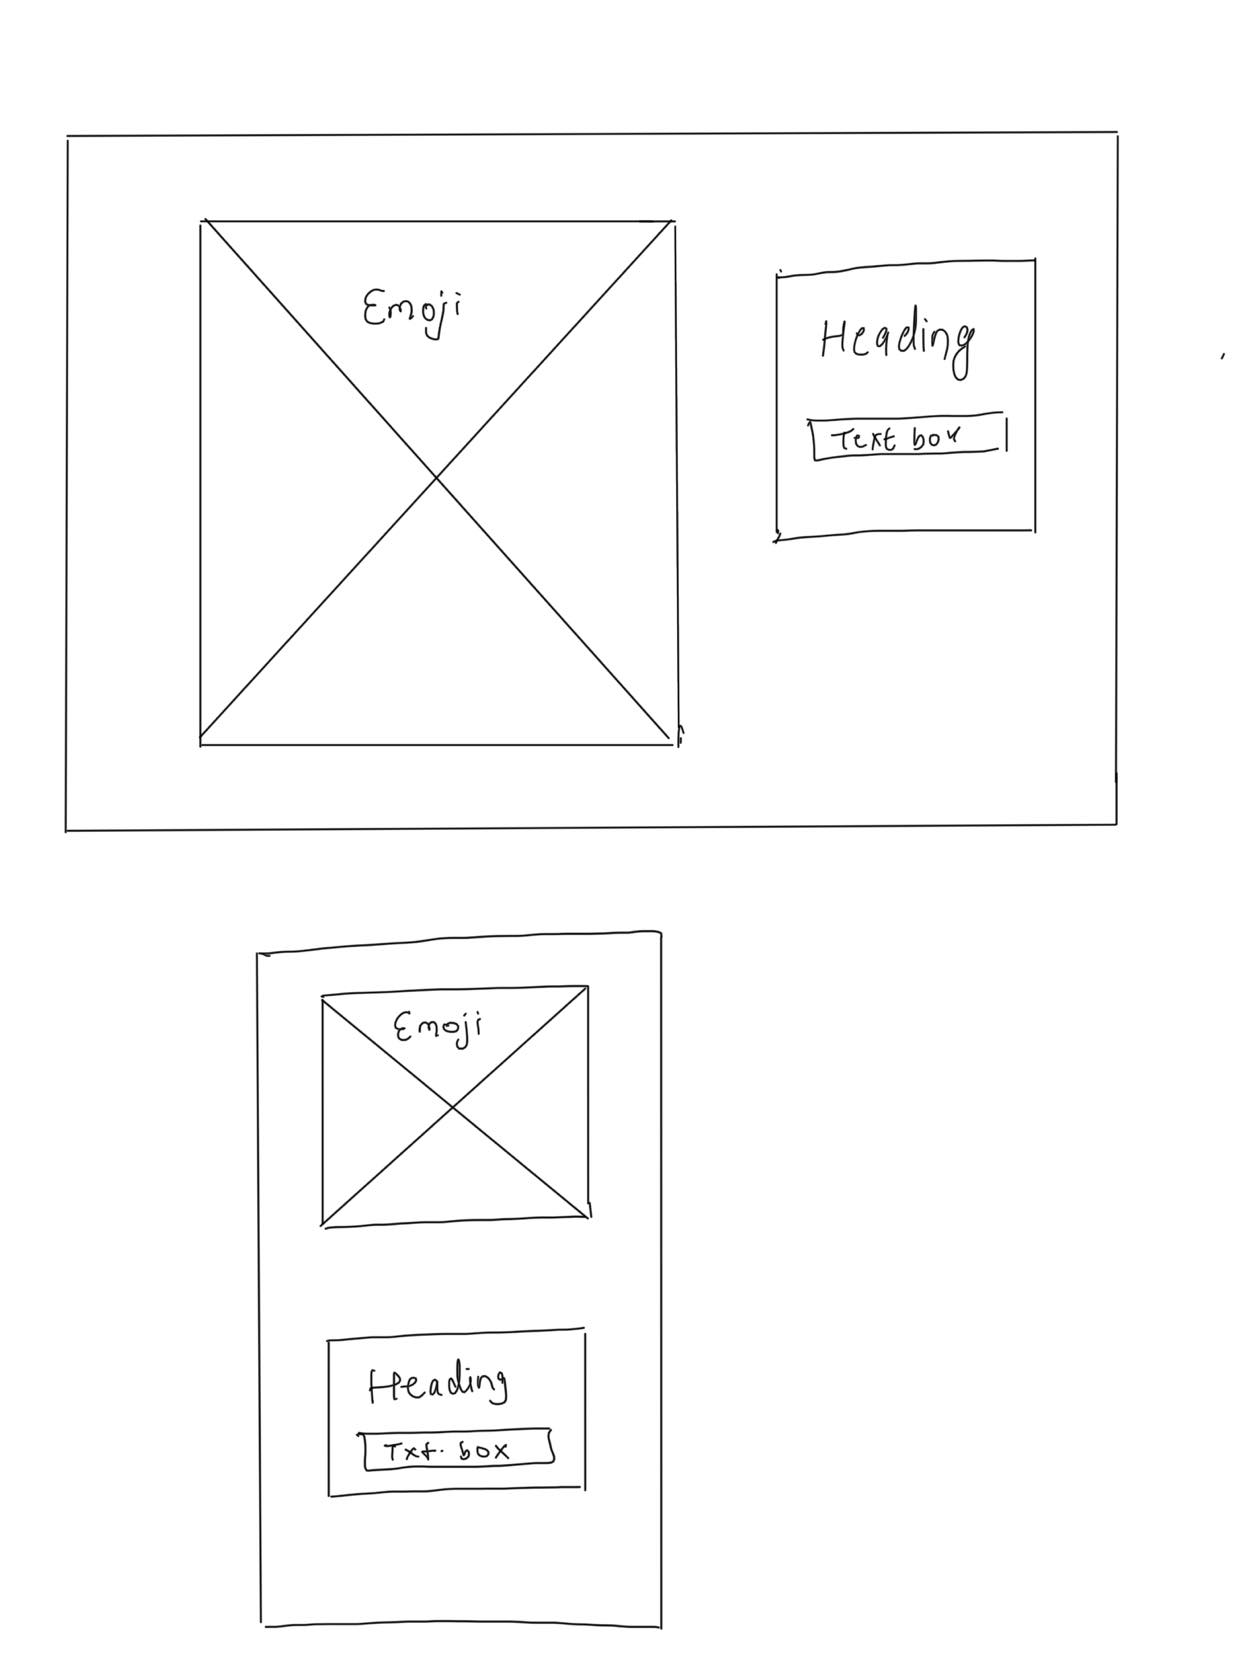 Emoji
Heading
Text box
Emoji
Heading
Txt. box